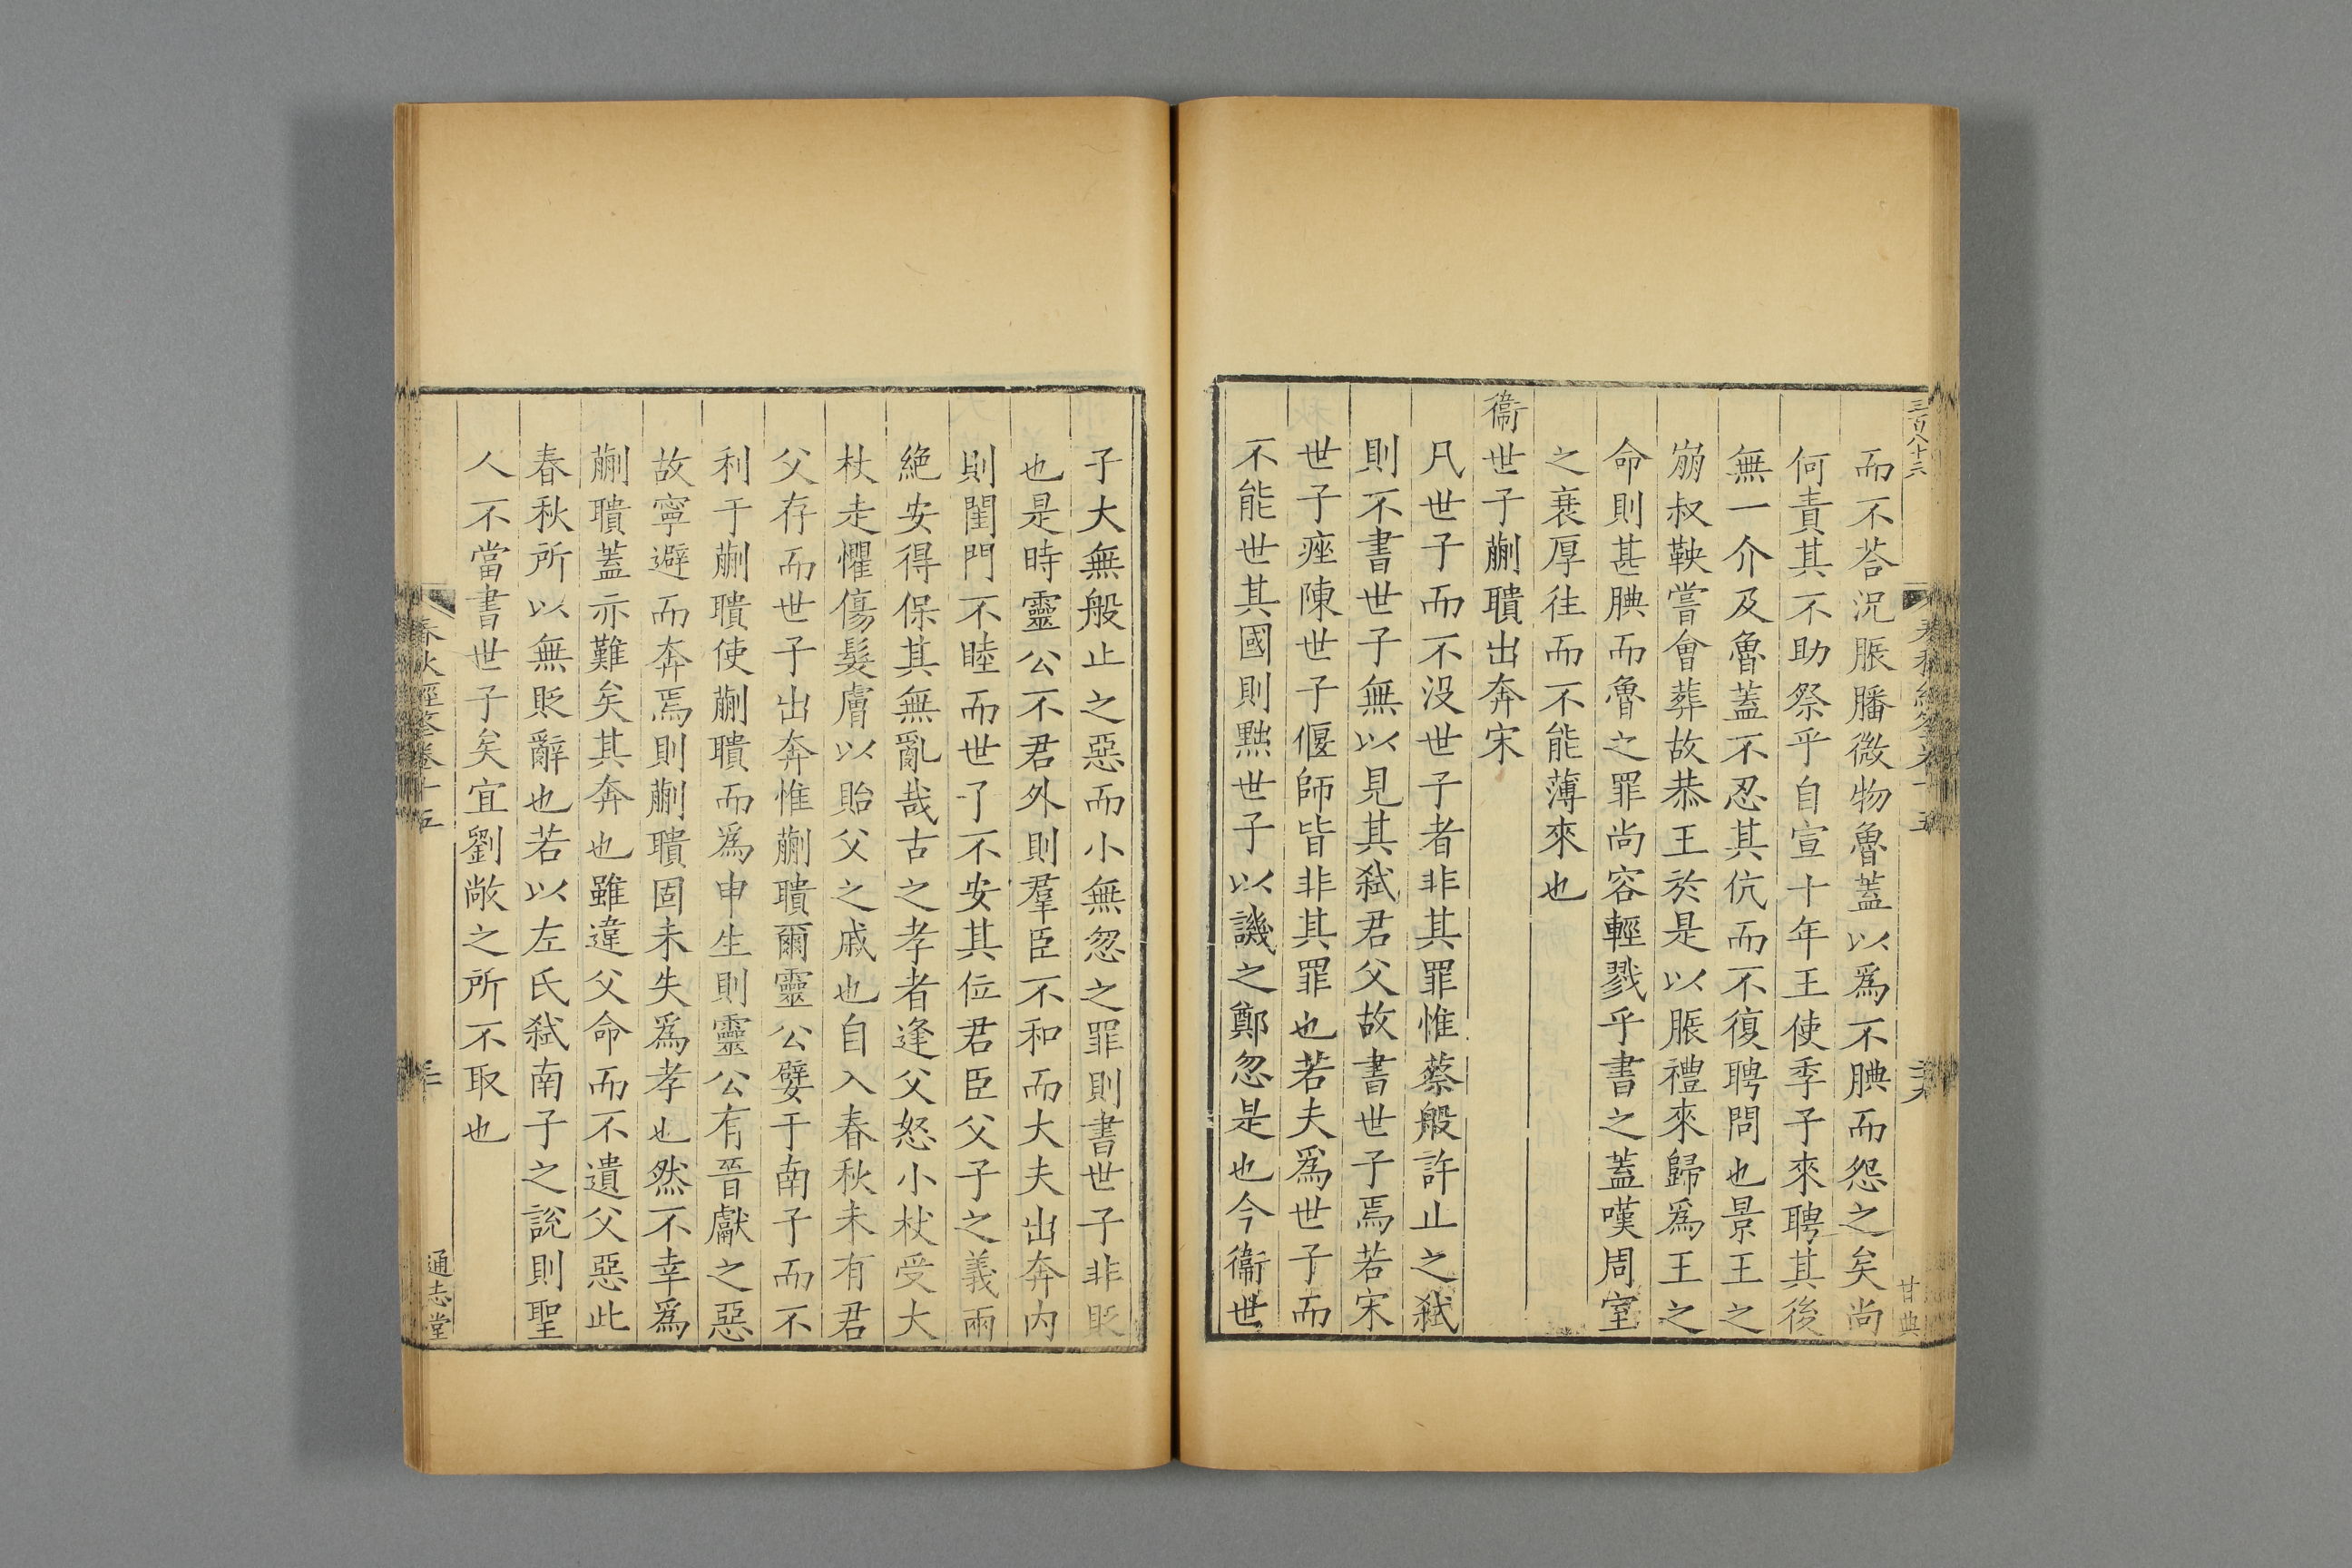 三百八十六
而不荅況脤膰微物魯蓋以爲不腆而怨之矣尚
何責其不助祭乎自宣十年王使季子來聘其後
無一介及魯蓋不忍其伉而不復聘問也景王之
崩叔鞅嘗會葬故恭王於是以脤禮來歸爲王之
命則甚腆而魯之罪尚容輕戮乎書之蓋嘆周室
之衰厚往而不能薄來也
衞世子蒯聵出奔宋
凡世子而不没世子者非其罪惟蔡般許止之弑
則不書世子無以見其弑君父故書世子焉若宋
世子痤陳世子偃師皆非其罪也若夫爲世子而
不能世其國則黜世子以譏之鄭忽是也今衞世
甘典
子大無般止之惡而小無忽之罪則書世子非貶
也是時靈公不君外則羣臣不和而大夫出奔内
則閨門不睦而世子不安其位君臣父子之義兩
絶安得保其無亂哉古之孝者逢父怒小杖受大
杖走懼傷髮膚以貽父之戚也自入春秋未有君
父存而世子出奔惟蒯聵爾靈公嬖于南子而不
利于蒯聵使蒯聵而爲申生則靈公有晉獻之惡
故寧避而奔焉則蒯聵固未失爲孝也然不幸爲
蒯聵蓋亦難矣其奔也雖違父命而不遺父惡此
春秋所以無貶辭也若以左氏弑南子之說則聖
人不當書世子矣宜劉敞之所不取也
春秋經筌卷十五
三十
通志堂